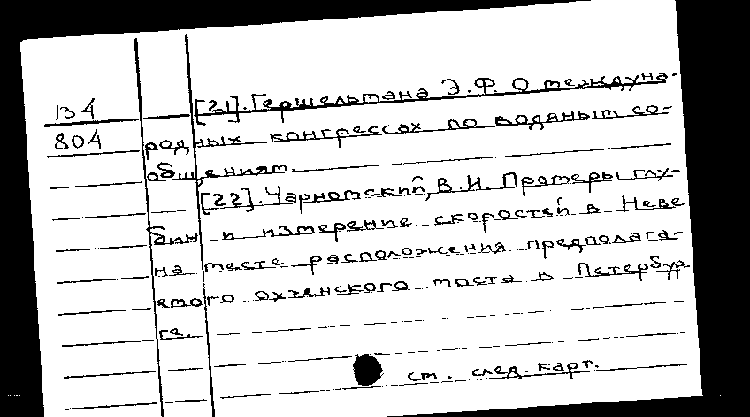 В4
804
[21]. Гершельмана Э.Ф. О междуна-
родных конгрессах по водяным со-
общениям.
[22]. Чарномский, В.И. Промеры глу-
бин и измерение скоростей в Неве
на месте расположения предполага-
емого охтенского моста в Петербур
ге.
см. след. карт.